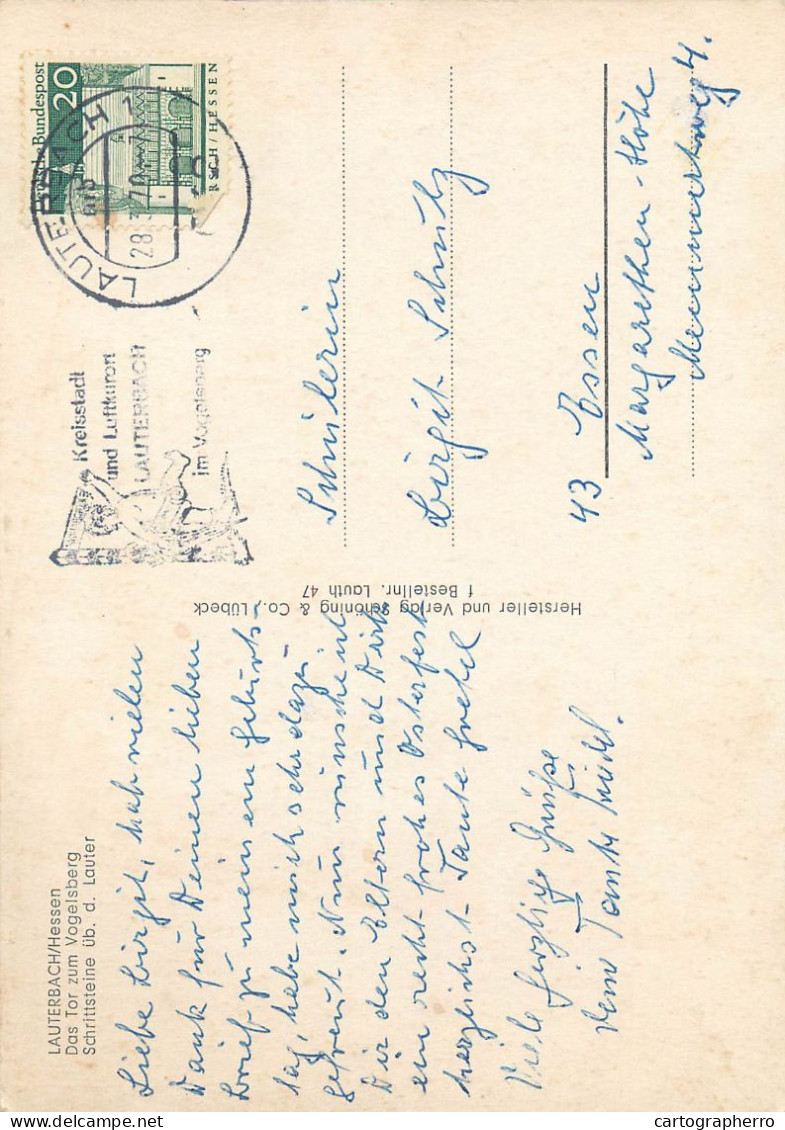 LAUTERBACH/Hessen
Das Tor zum Vogelsberg
Schrittsteine üb. d. Lauter
Liebe Birgit, hab vielen
Dank für Deinen lieben
Brief zu meinem Geburts-
tag, habe mich sehr dazu
gefreut. Nun wünsche ich
Dir den Eltern und Dirk
ein recht frohes Osterfest
herzlichst Tante Gretel
Viele herzliche Grüße
von Tante
Hersteller und Verlag Schöning & Co., Lübeck
f Bestellnr. Lauth 47
Deutsche Bundespost
20
RSCH/HESSEN
LAUTERBACH 1
28.3.70
Kreisstadt
und Luftkurort
LAUTERBACH
im Vogelsberg
Schülerin
Birgit Schulz
43 Essen
Margarethen-Höhe
cartographerro